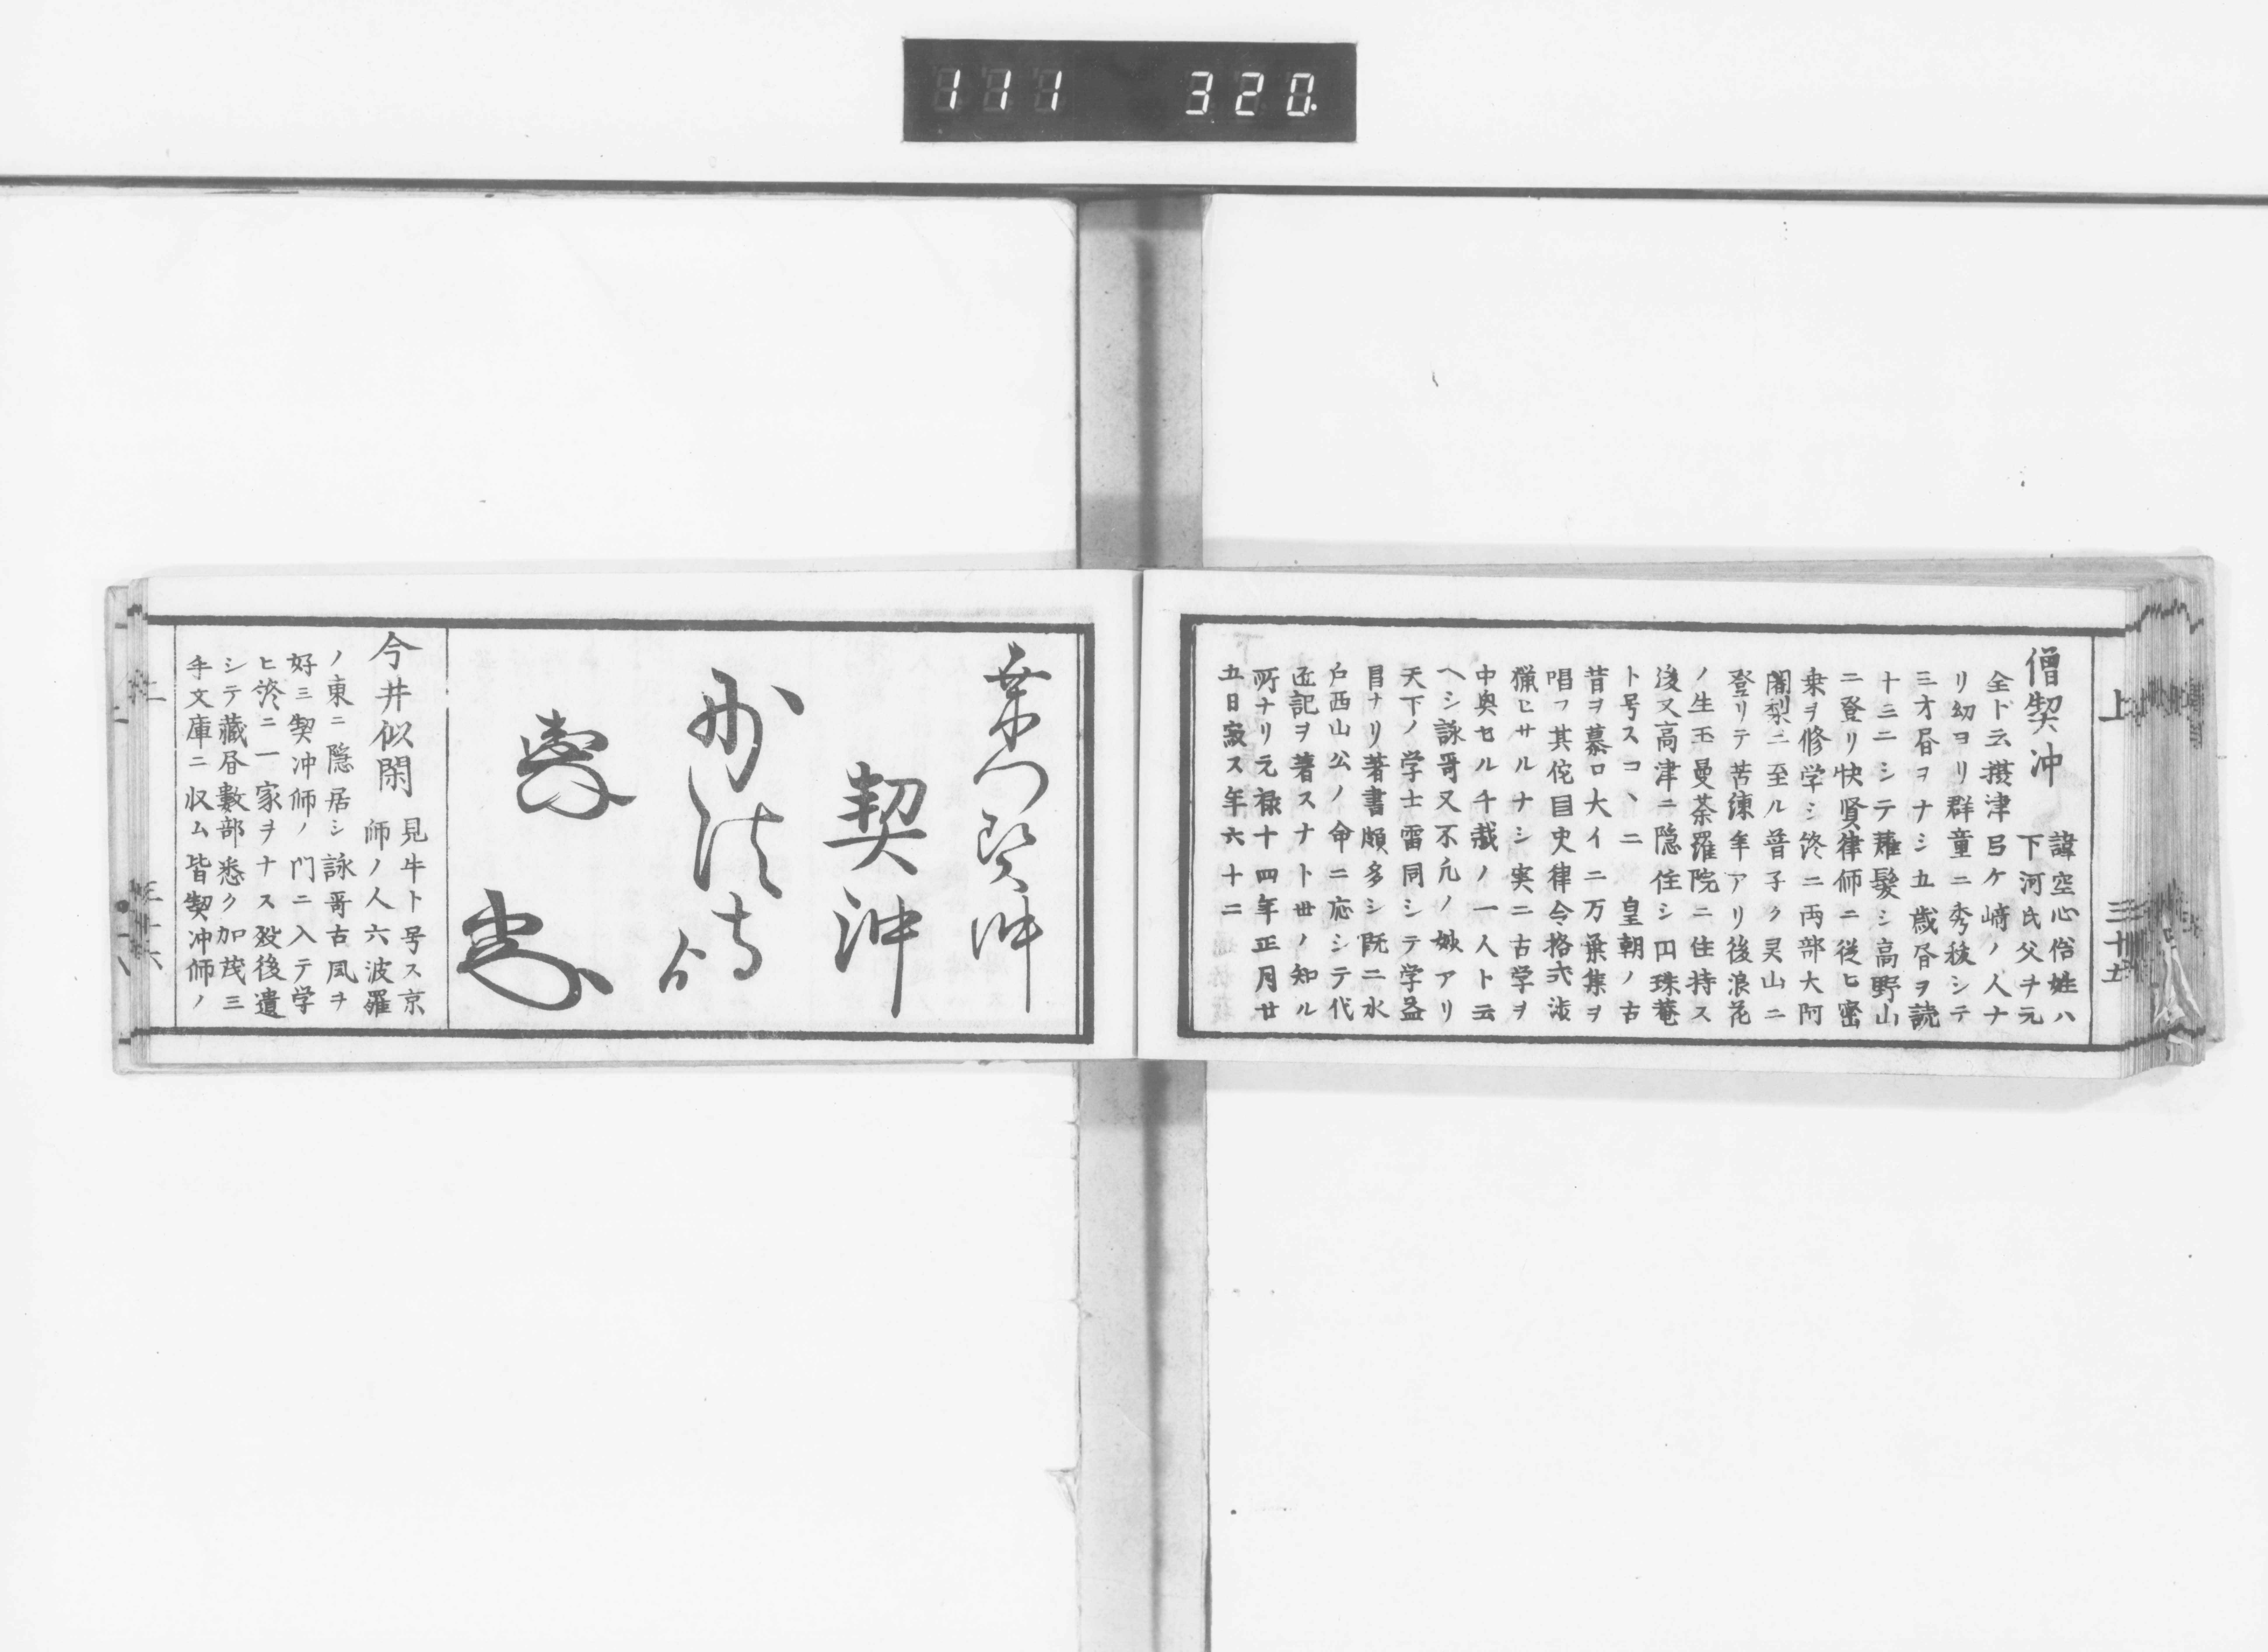 111 320.
上 三十五
僧契冲 諱空心俗姓ハ
下河氏父ヲ元
全ト云摂津弓ケ﨑ノ人ナ
リ幼ヨリ群童ニ秀穎シテ
三才昼ヲナシ五歳昼ヲ読
十三ニシテ薙髪シ高野山
ニ登リ快賢律師ニ従ヒ密
乗ヲ修学シ終ニ両部大阿
闍梨ニ至ル普子ク灵山ニ
登リテ苦練年アリ後浪花
ノ生玉曼荼羅院ニ住持ス
後又高津ニ隠住シ円珠菴
ト号スコヽニ 皇朝ノ古
昔ヲ慕ロ大イニ万葉集ヲ
唱フ其佗目史律令格式渉
猟ヒサルナシ実ニ古学ヲ
中奥セル千載ノ一人ト云
ヘシ詠哥又不凡ノ妙アリ
天下ノ学士雷同シテ学益
目ナリ著書頗多シ既ニ水
戸西山公ノ命ニ応シテ代
匠記ヲ著スナト世ノ知ル
所ナリ元禄十四年正月廿
五日寂ス年六十二
契冲
契沖
今井似閑 見牛ト号ス京
師ノ人六波羅
ノ東ニ隠居シ詠哥古風ヲ
好ミ契冲師ノ門ニ入テ学
ヒ終ニ一家ヲナス歿後遺
シテ藏昼數部悉ク加茂三
手文庫ニ収ム皆契冲師ノ